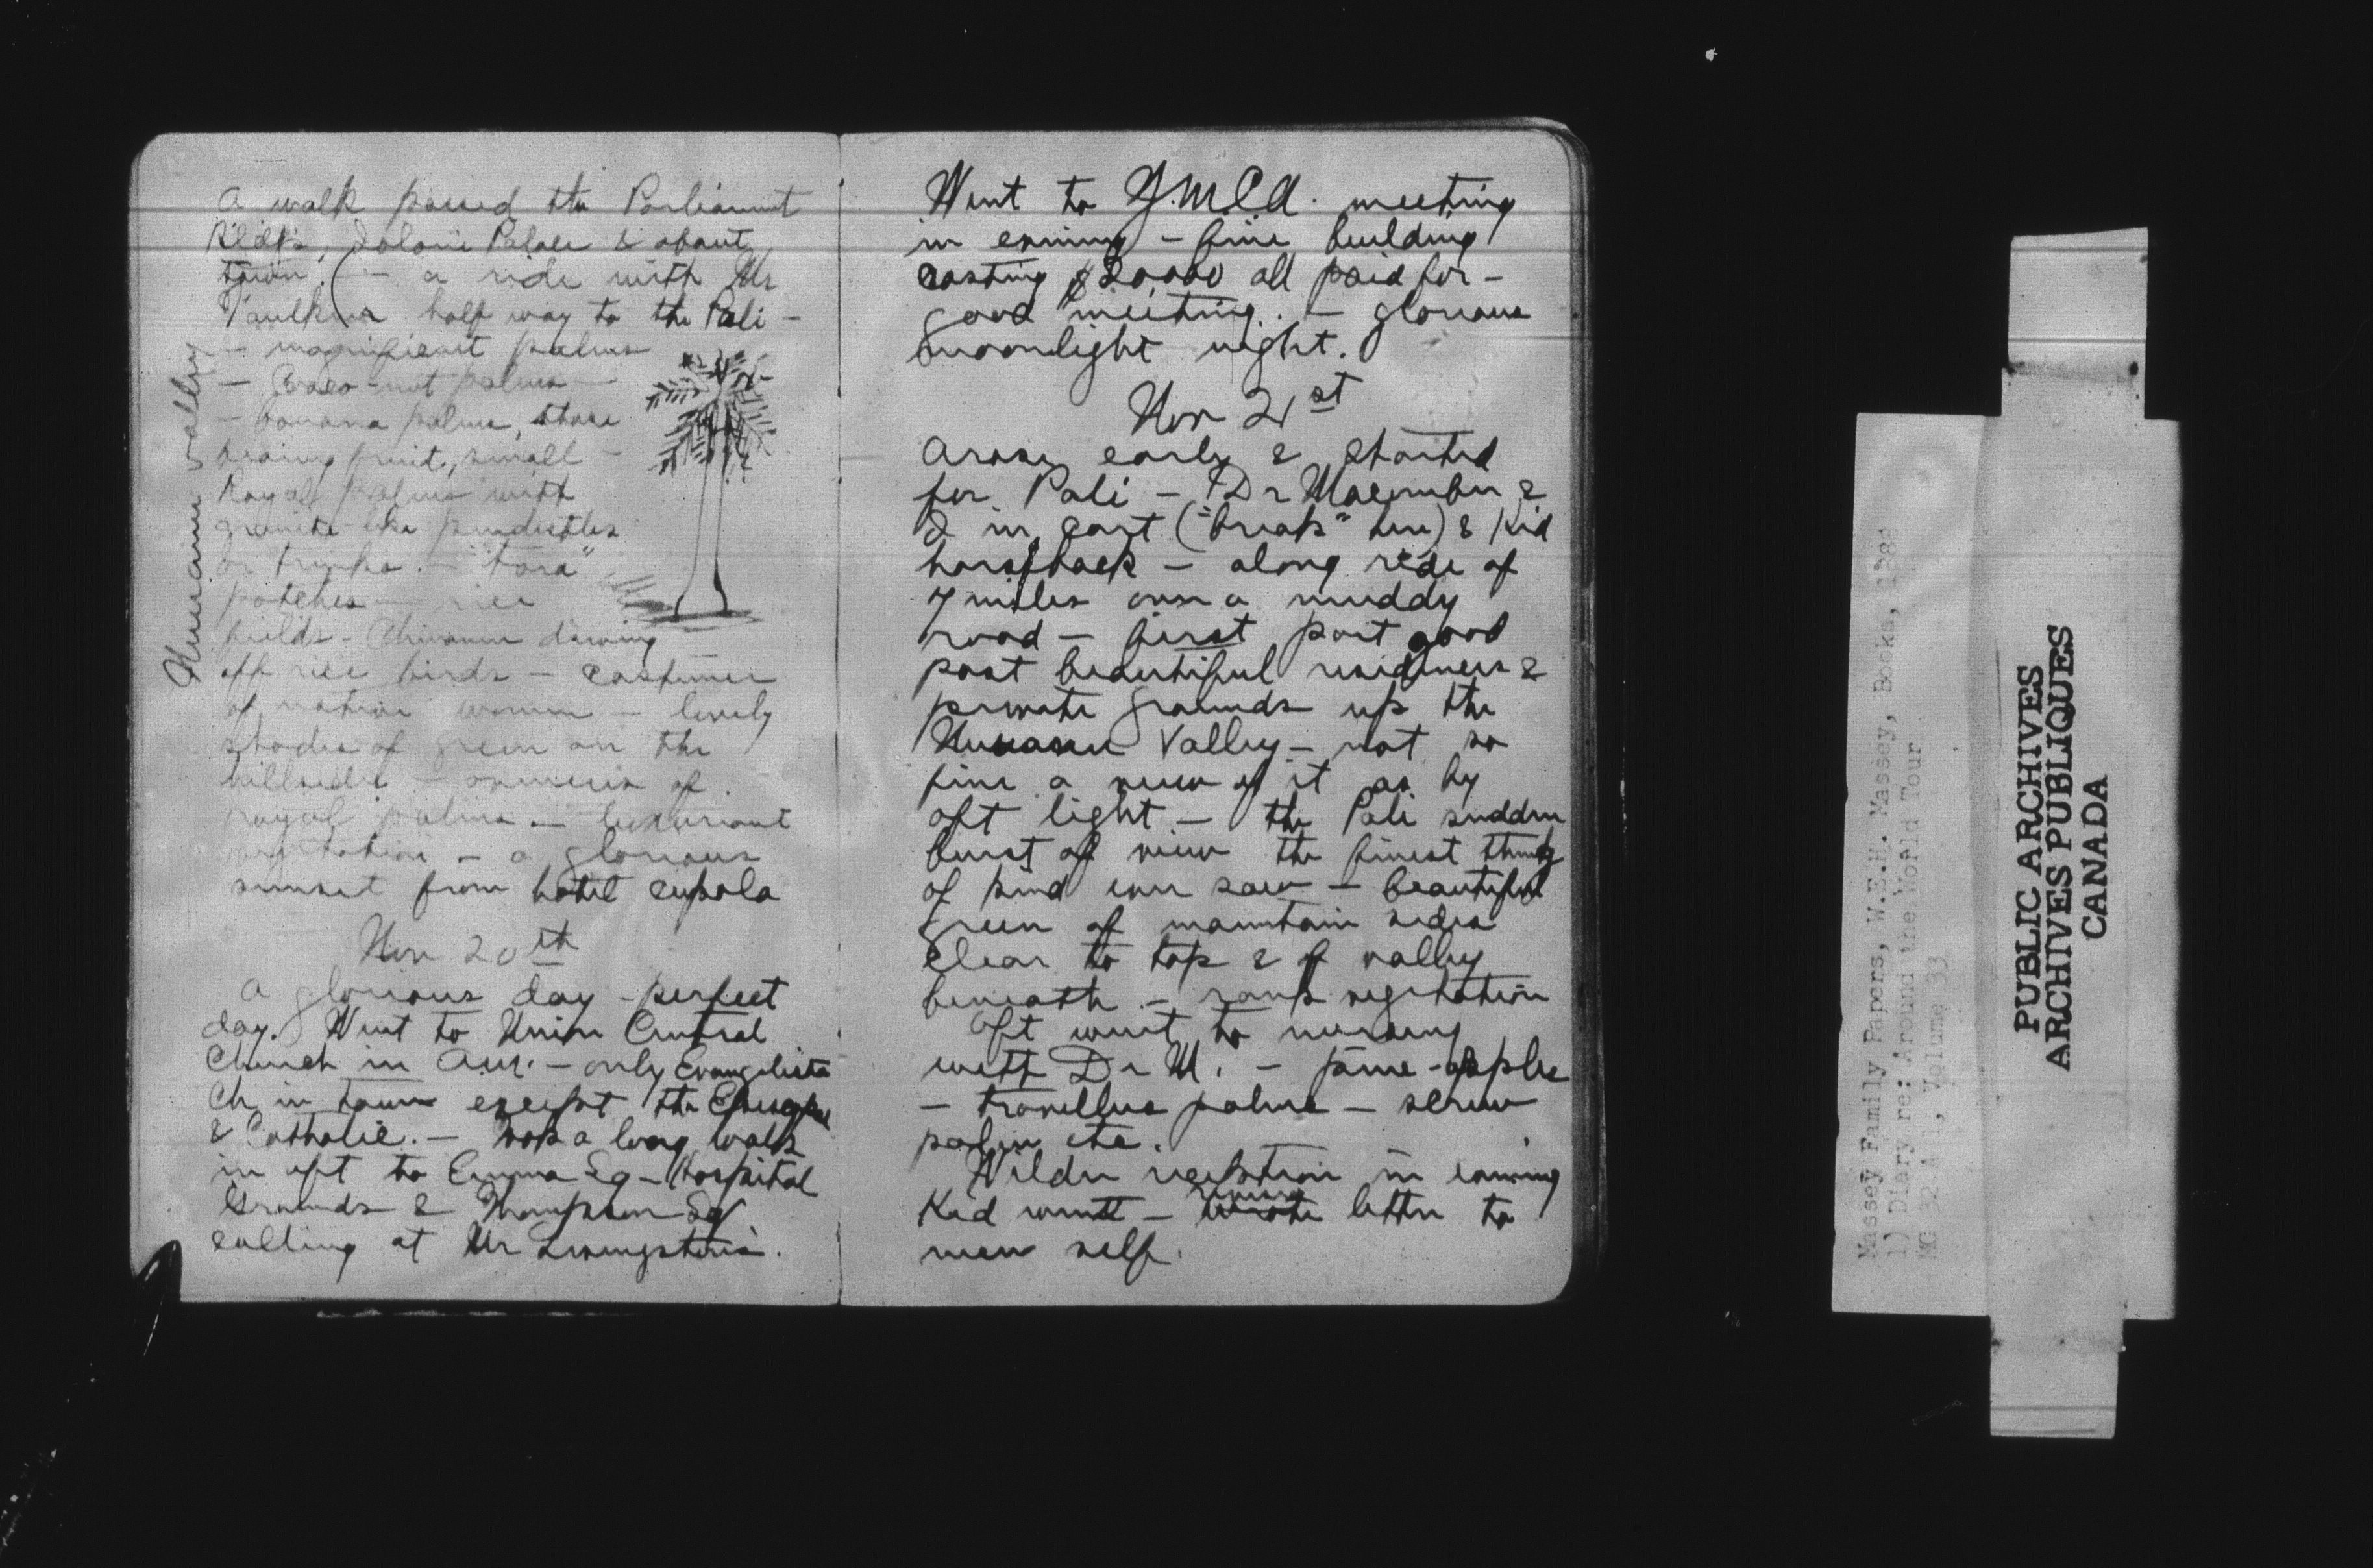 A walk passed the Parliament
Bldgs, Iolani Palace & about
town. (— a ride with Mr
half way to the Pali —
— magnificent palms
— Coco-nut palms —
— banana palms, those
bearing fruit, small —
Royal palms with
granite-like
or trunks. — "tara"
patches — rice
fields — Chinamen driving
off rice birds — costumes
of native women — lovely
shades of green on the
hillsides — avenues of
royal palms — luxuriant
vegetation — a glorious
sunset from hotel cupola
Nuuanu Valley
Nov 20th
A glorious day — perfect
day. Went to Union Central
Church in a.m. — only Evangelistic
Ch in town except the Episcopal
& Catholic. — Took a long walk
in aft to Emma Sq — Hospital
Grounds & Thompson Sq
calling at Mr Livingston's.
Went to Y.M.C.A. meeting
in evening — fine building
costing $20,000 all paid for —
good meeting. — glorious
moonlight night.
Nov 21st
Arose early & started
for Pali — Dr Macomber &
I in cart ("break" here) & Kid
horseback — along ride of
7 miles over a muddy
road — first part good
past beautiful residences &
private grounds up the
Nuuanu Valley — not so
fine a view of it as by
aft light — the Pali sudden
burst of view the finest thing
of kind ever saw — beautiful
green of mountain sides
clear to top & of valley
beneath — rank vegetation
Aft went to nursery
with Dr M. — pine-apple
— travellers palms — screw
palm etc.
Wilder reception in evening
Kid went — wrote letter to
new self.
Massey Family Papers, W.E.H. Massey, Books, 1888
1) Diary re: Around the World Tour
MG 32 A 1, Volume 33
PUBLIC ARCHIVES
ARCHIVES PUBLIQUES
CANADA